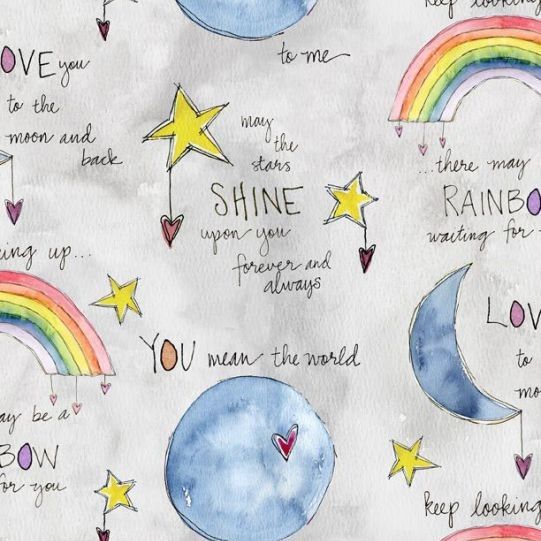 keep looking
to me
LOVE you
to the
moon and
back
may
the
stars
SHINE
upon you
forever and
always
...there may
RAINBO
waiting for
ing up...
YOU mean the world
LOV
to
mo
ay be a
BOW
for you
keep looking